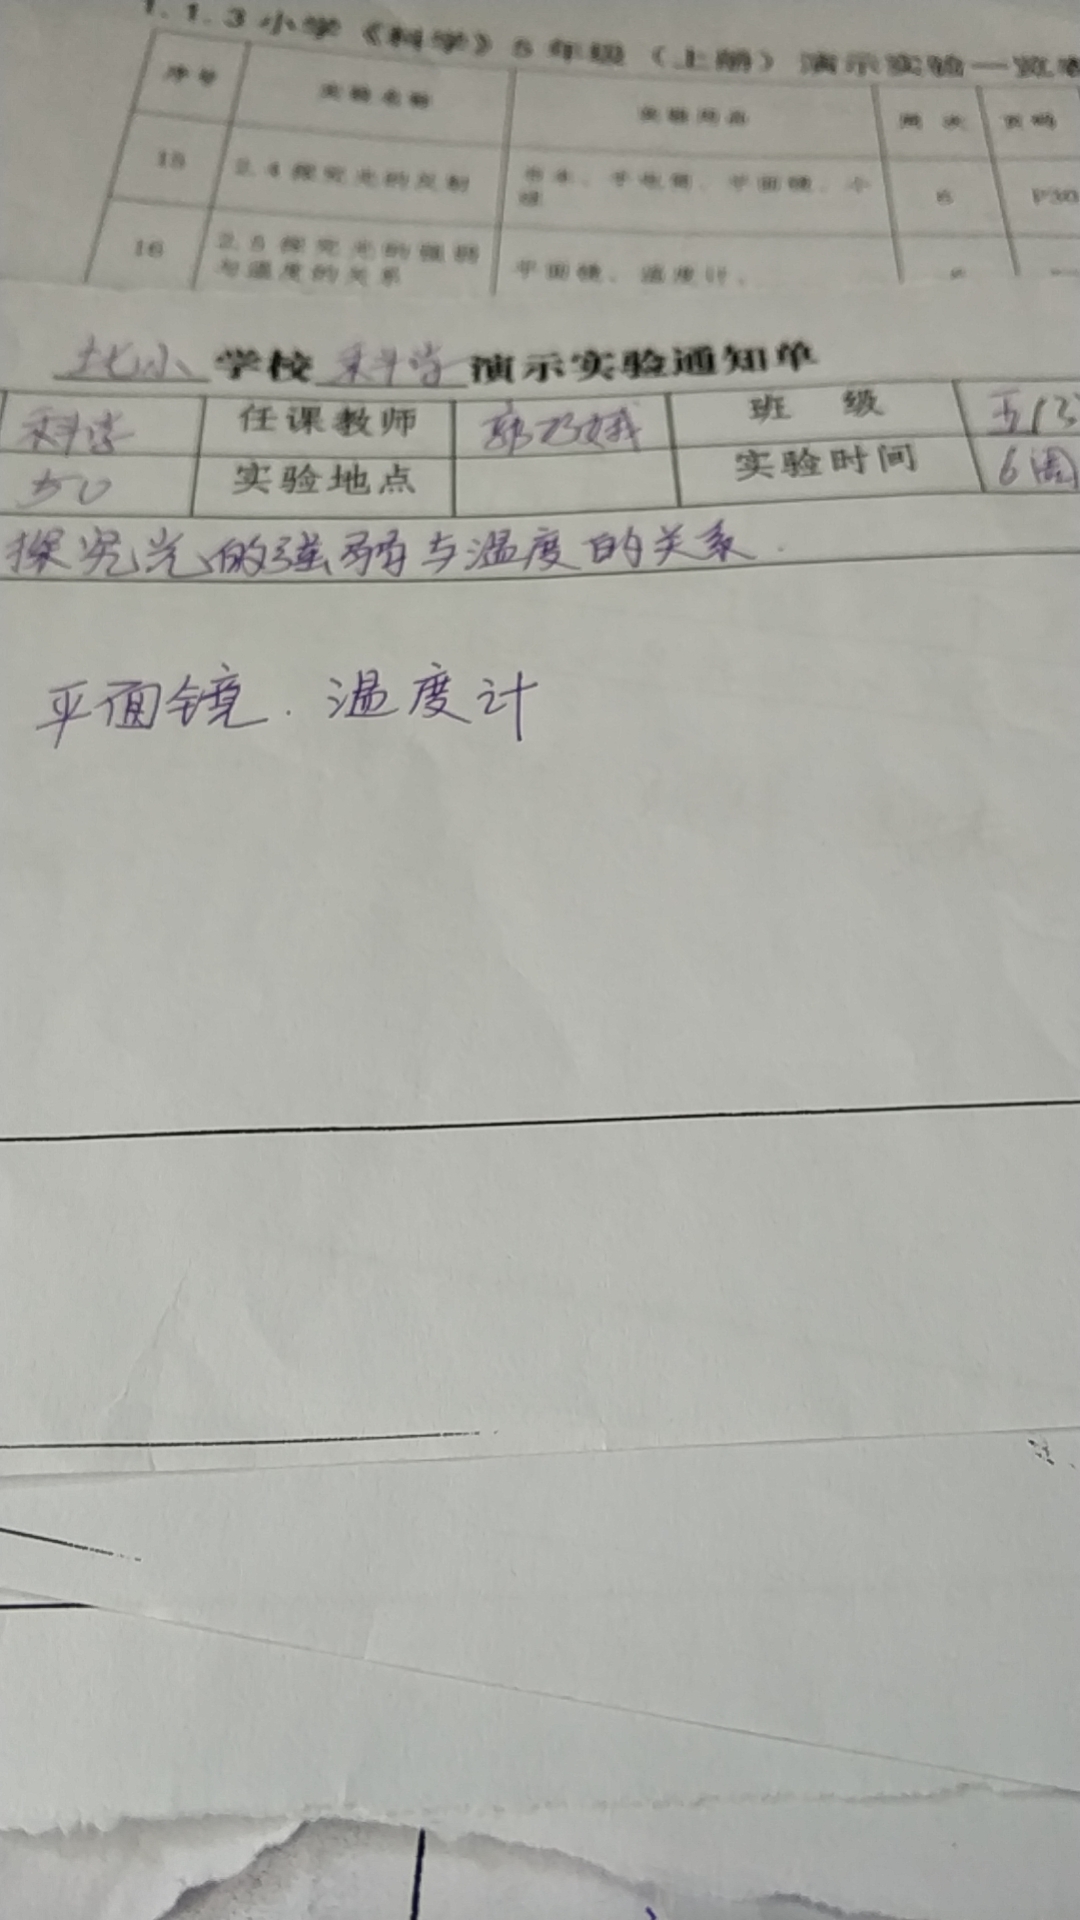 1.1.3小学《科学》5年级（上册）演示实验一览
序号 实验名称 实验用品 周次 页码
15 2.4探究光的反射 书本、手电筒、平面镜、小 6 P30
16 2.5探究光的强弱
与温度的关系 平面镜、温度计、
北小 学校 科学 演示实验通知单
科学 任课教师 班 级 五(3
50 实验地点 实验时间 6周
探究光的强弱与温度的关系.
平面镜.温度计